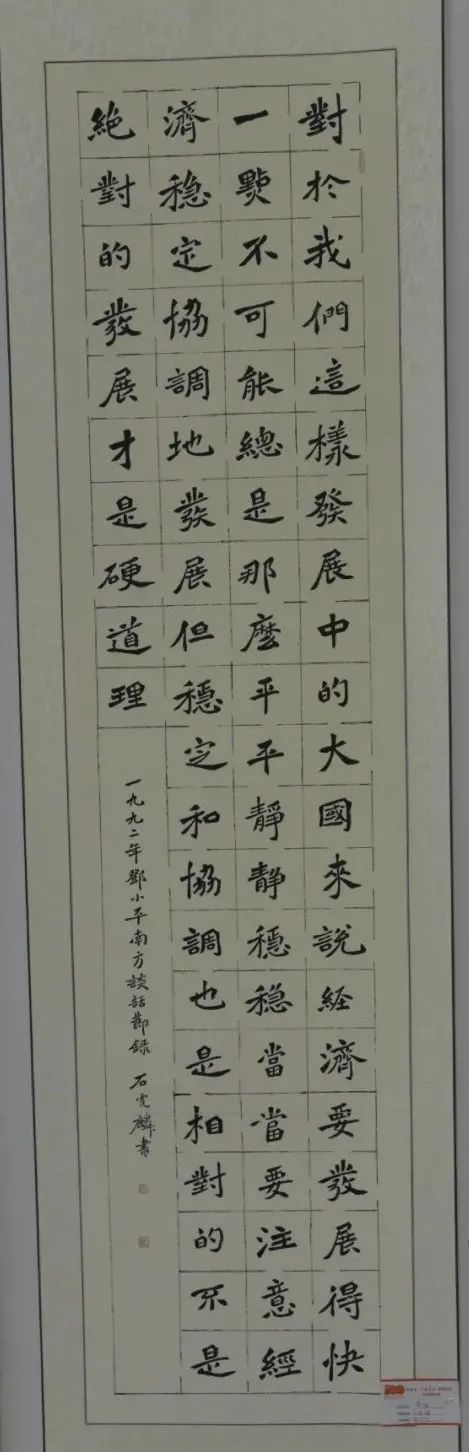 對於我們這樣發展中的大國來說経濟要發展得快
一點不可能總是那麽平平靜静穩稳當當要注意經
濟稳定協調地發展但穩定和協調也是相對的不是
絶對的發展才是硬道理
一九九二年鄧小平南方談話節録 石宪麟書